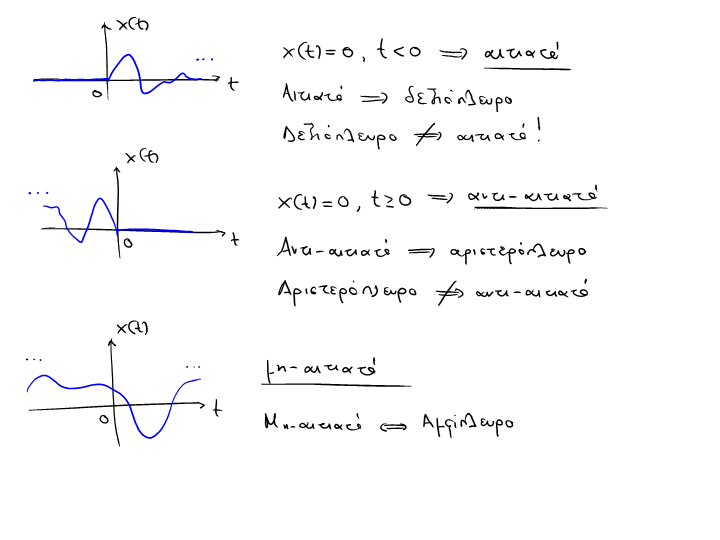 x(t)
...
t
0
x(t) = 0, t < 0 ⟹ αιτιατό
Αιτιατό ⟹ δεξιόπλευρο
Δεξιόπλευρο ⇏ αιτιατό!
x(t)
...
t
0
x(t) = 0, t ≥ 0 ⟹ αντι-αιτιατό
Αντι-αιτιατό ⟹ αριστερόπλευρο
Αριστερόπλευρο ⇏ αντι-αιτιατό
x(t)
... ...
t
0
μη-αιτιατό
Μη-αιτιατό ⟺ Αμφίπλευρο